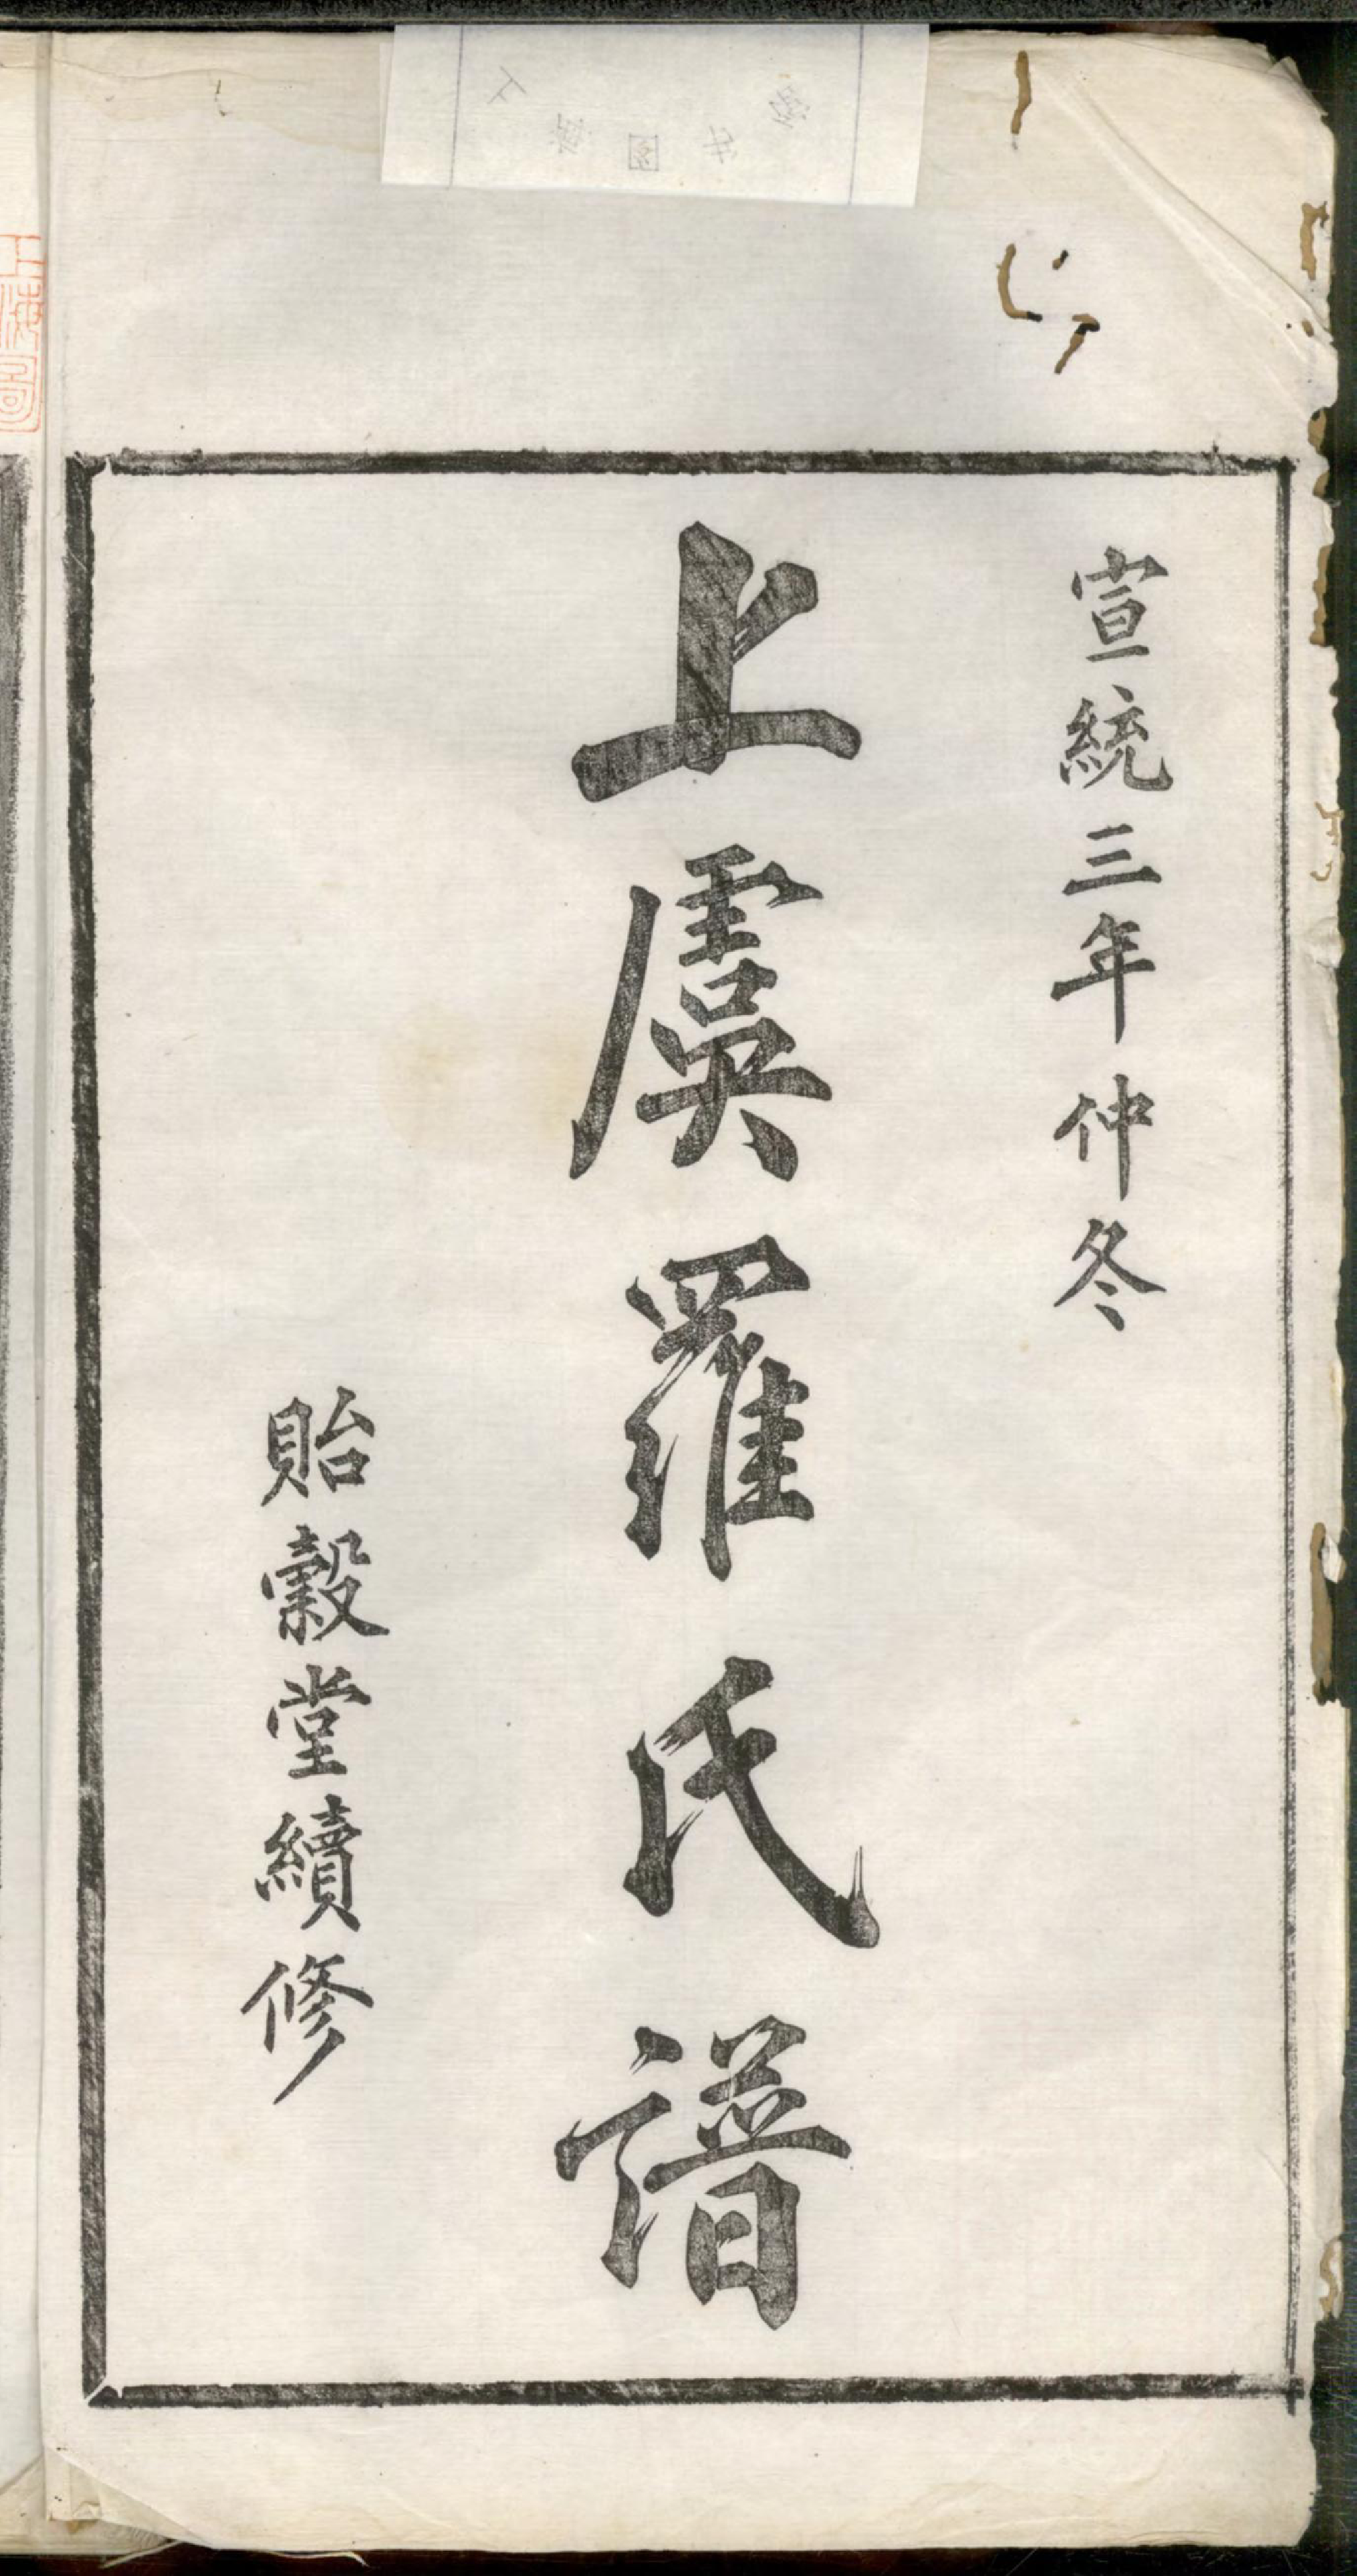 宣統三年仲冬
上虞羅氏譜
貽穀堂續修